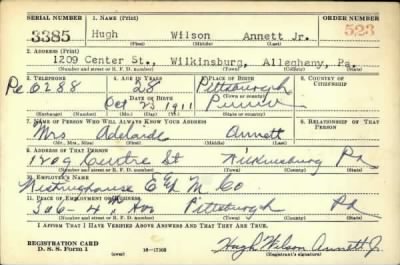 SERIAL NUMBER 1. NAME (Print) ORDER NUMBER
3385 Hugh Wilson Annett Jr. 523
(First) (Middle) (Last)
2. ADDRESS (Print)
1209 Center St., Wilkinsburg, Allegheny, Pa.
(Number and street or R. F. D. number) (Town) (County) (State)
3. TELEPHONE 4. AGE IN YEARS 5. PLACE OF BIRTH 6. COUNTRY OF CITIZENSHIP
Pe 0288 28 Pittsburgh
DATE OF BIRTH (Town or county)
Oct 23 1911 Penna
7. NAME OF PERSON WHO WILL ALWAYS KNOW YOUR ADDRESS 8. RELATIONSHIP OF THAT PERSON
Mrs Adelaide Annett
(Mr., Mrs., Miss) (First) (Middle) (Last)
9. ADDRESS OF THAT PERSON
1209 Centre St Wilkinsburg Pa
(Number and street or R. F. D. number) (Town) (County) (State)
10. EMPLOYER'S NAME
Westinghouse E & M Co
11. PLACE OF EMPLOYMENT OR BUSINESS
306-4th Ave Pittsburgh Pa
(Number and street or R. F. D. number) (Town) (County) (State)
I AFFIRM THAT I HAVE VERIFIED ABOVE ANSWERS AND THAT THEY ARE TRUE.
REGISTRATION CARD
D. S. S. Form 1 (over) Hugh Wilson Annett Jr
(Registrant's signature)